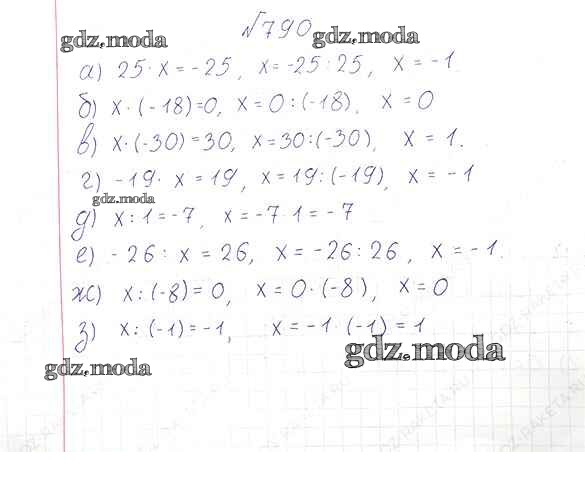 №790
gdz.moda gdz.moda
а) 25·x=-25, x=-25:25, x=-1
б) x·(-18)=0, x=0:(-18), x=0
в) x·(-30)=30, x=30:(-30), x=1.
г) -19·x=19, x=19:(-19), x=-1
gdz.moda
д) x:1=-7, x=-7·1=-7
е) -26:x=26, x=-26:26, x=-1.
ж) x:(-8)=0, x=0·(-8), x=0
з) x:(-1)=-1, x=-1·(-1)=1
gdz.moda
gdz.moda